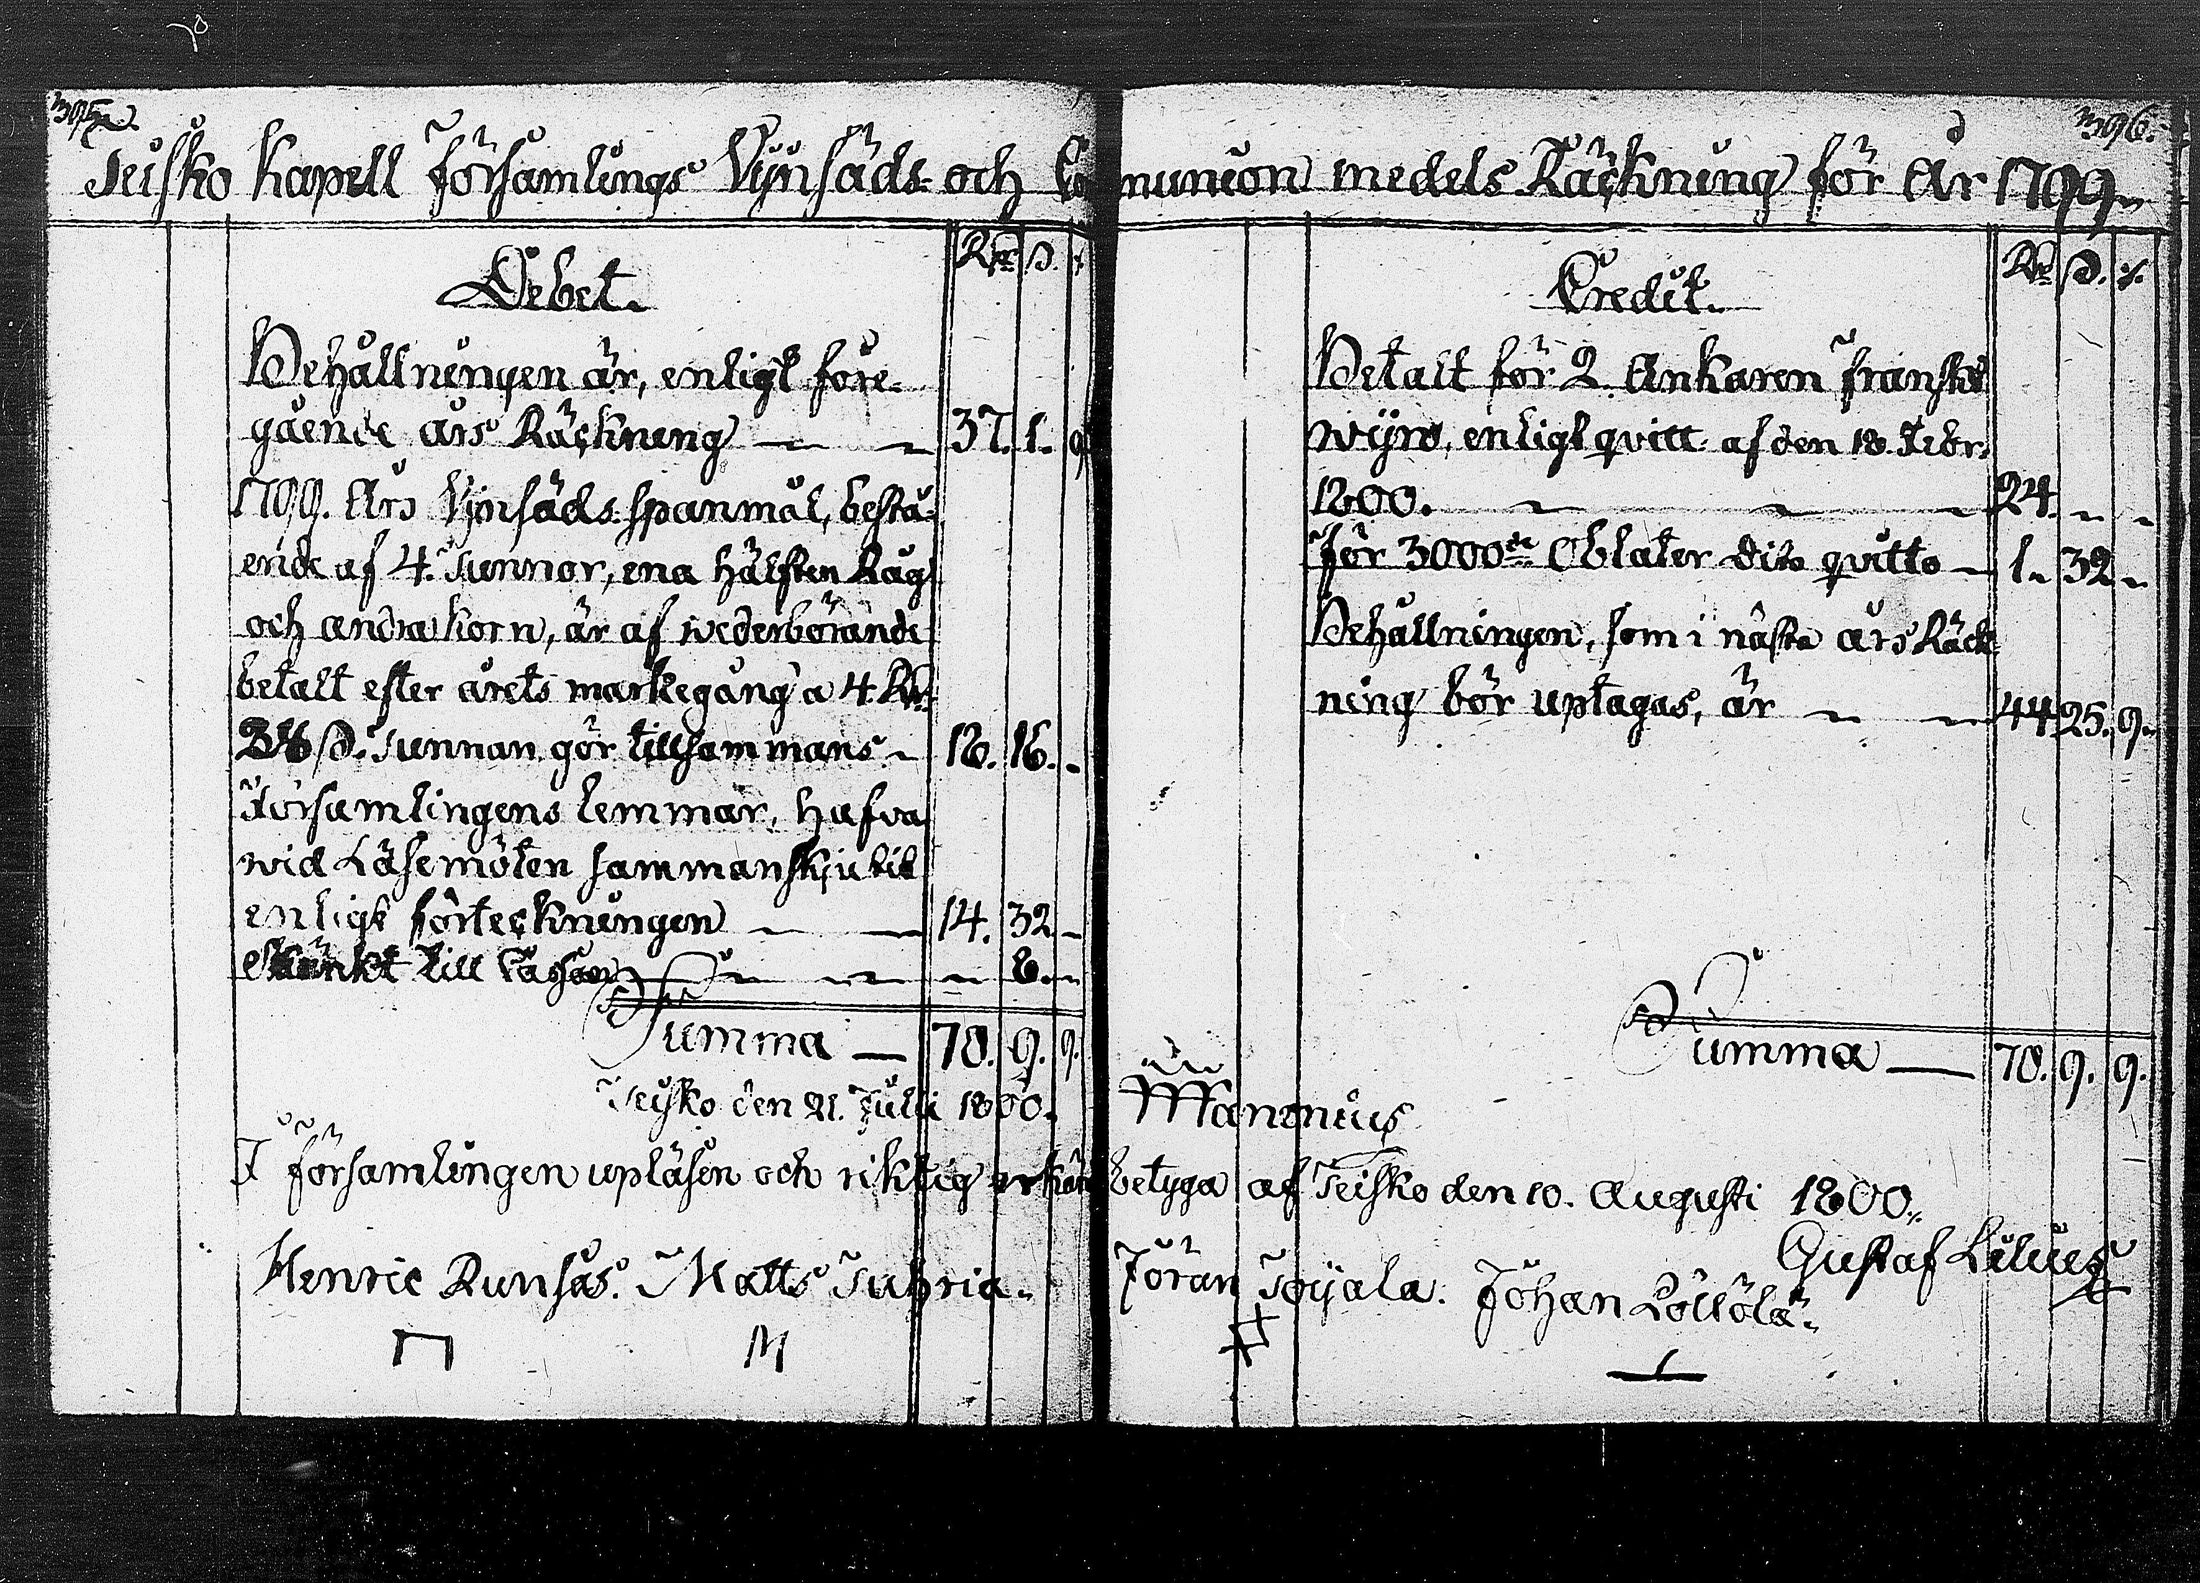 395.
Teisko Kapell Församlings Vijnsäds- och Communion medels Räckning för År 1799.
Debet.
Rdr ß. r
Behållningen är, enligt före-
gående års Räckning — ~ 37. 1. 9
1799. Års Vijnsäds spanmål, bestå-
ende af 4. Tunnor, ena hälften Råg
och andra korn, är af wederbörande
betalt efter årets markegång a 4. Rdr
28 ß. Tunnan gör tillsammans ~ 18. 16. -
Församlingens lemmar, hafva
wid Läsemöten sammanskjutit
enligt förteckningen ~ — 14. 32 -
Skänkt till Cassan ~ ~ ~ ~ 8. ~
Summa — 70. 9. 9.
Teisko den 21. Julii 1800.
396.
Credit.
Rdr ß. r.
Betalt för 2. Ankaren Franskt
wijn, enligt qvitt. af den 18. Febr.
1800. ~ ~ ~ 24. ~ ~
För 3000de Oblater dito qvitto — 1. 32 ~
Behållningen, som i nästa års Räck-
ning bör uptagas, är ~ ~ 44 25. 9.
Summa — 70. 9. 9.
Mannenius
I Församlingen upläsen och riktig erkänd betyga af Teisko den 10. Augusti 1800.
Gustaf Lilius
Henric Runsas. Matts Tuhria. Jöran Toijala. Johan Löllölä.
M